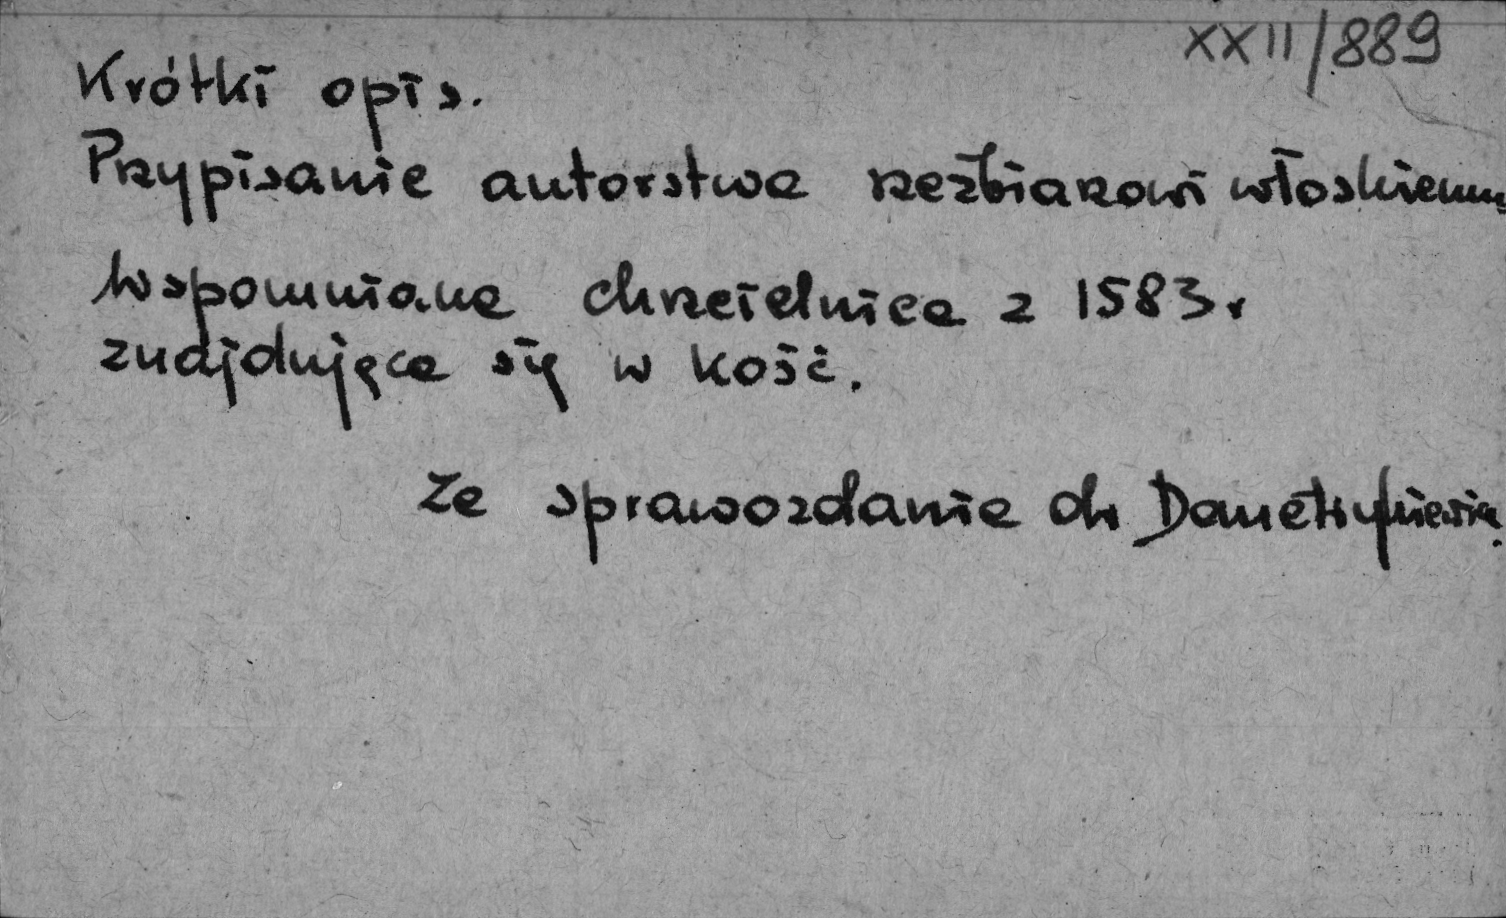 XXII/889
Krótki opis.
Przypisanie autorstwa rzeźbiarzowi włoskiemu
Wspomniana chrzcielnica z 1583 r
znajdująca się w kość.
Ze sprawozdania dr Demetrykiewicza